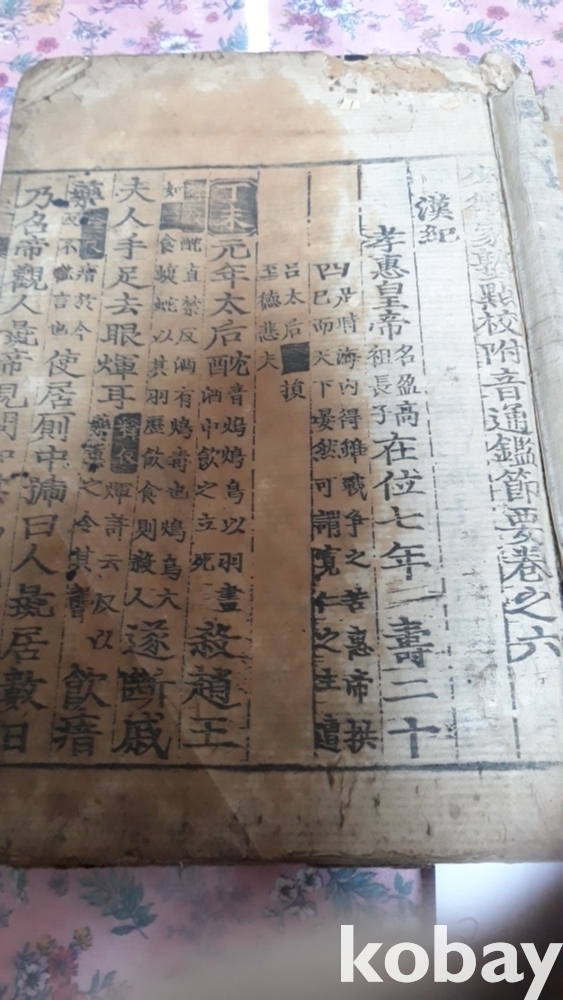 少微家塾點校附音通鑑節要卷之六
漢紀
孝惠皇帝 名盈高 祖長子 在位七年 壽二十
四 是時海內得離戰爭之苦惠帝拱
已而天下晏然可謂寬仁之主遭
呂太后
至德悲夫
丁未 元年太后酖 音鴆鴆鳥以羽畫
酒中飲之立死 殺趙王
如 酖直禁反酒有鴆毒也鴆鳥大
食蝮蛇以其羽歷飲食則殺人 遂斷戚
夫人手足去眼煇耳 煇許云反以
藥熏之令其 飲瘖
藥 不能言也 使居廁中號曰人彘居數日
乃召帝觀人彘帝見問
kobay